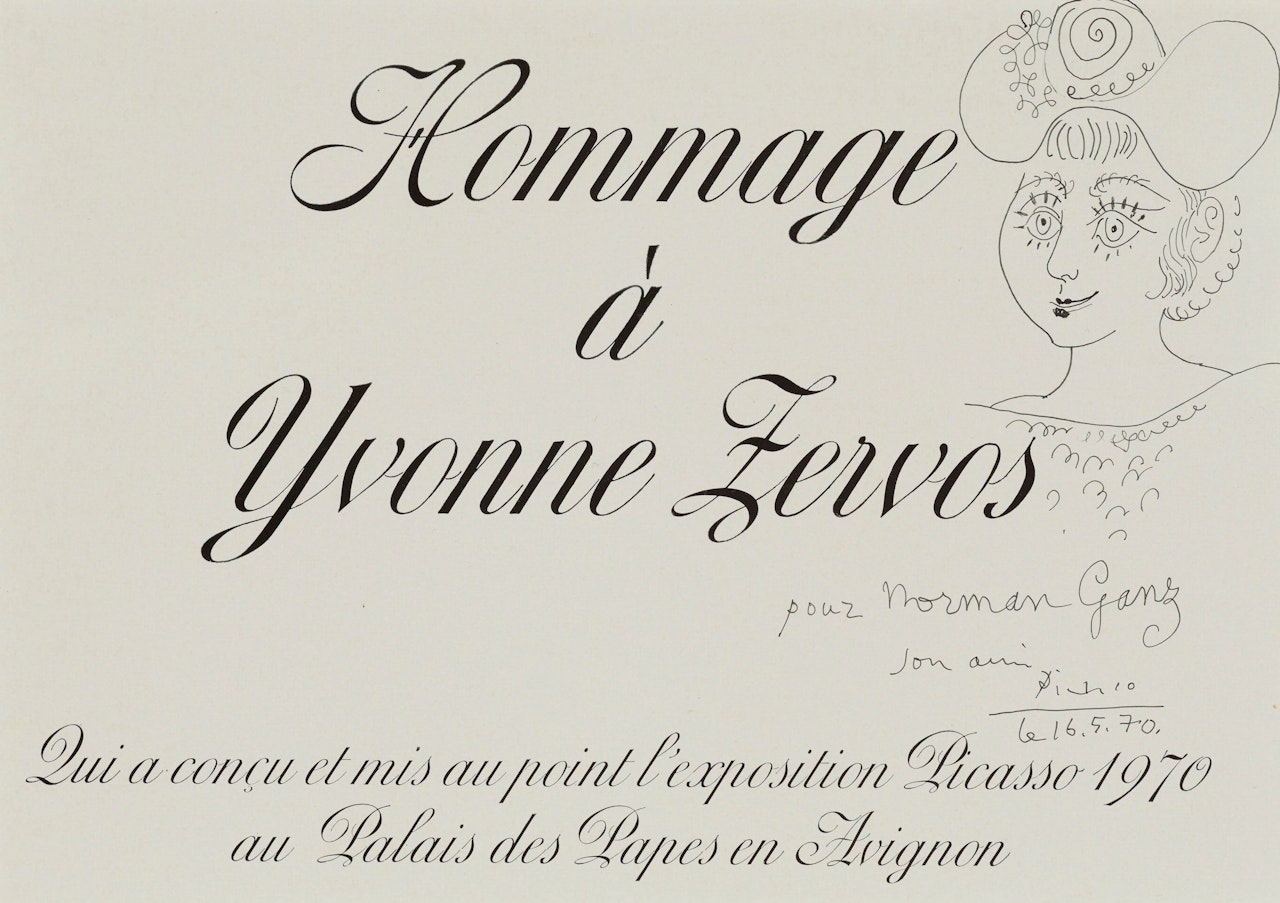 Hommage
à
Yvonne Zervos
pour Norman Ganz
son ami
Picasso
le 16.5.70.
Qui a conçu et mis au point l'exposition Picasso 1970
au Palais des Papes en Avignon